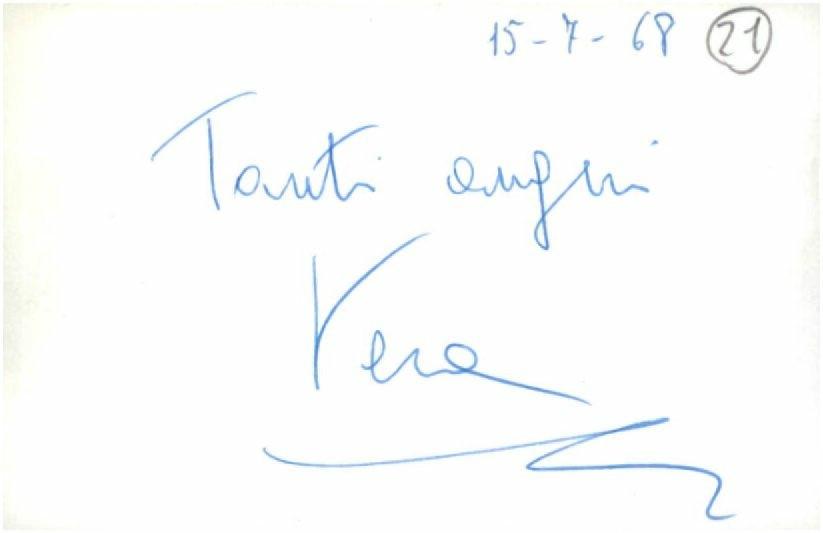 15-7-68 21
Tanti auguri
Vera